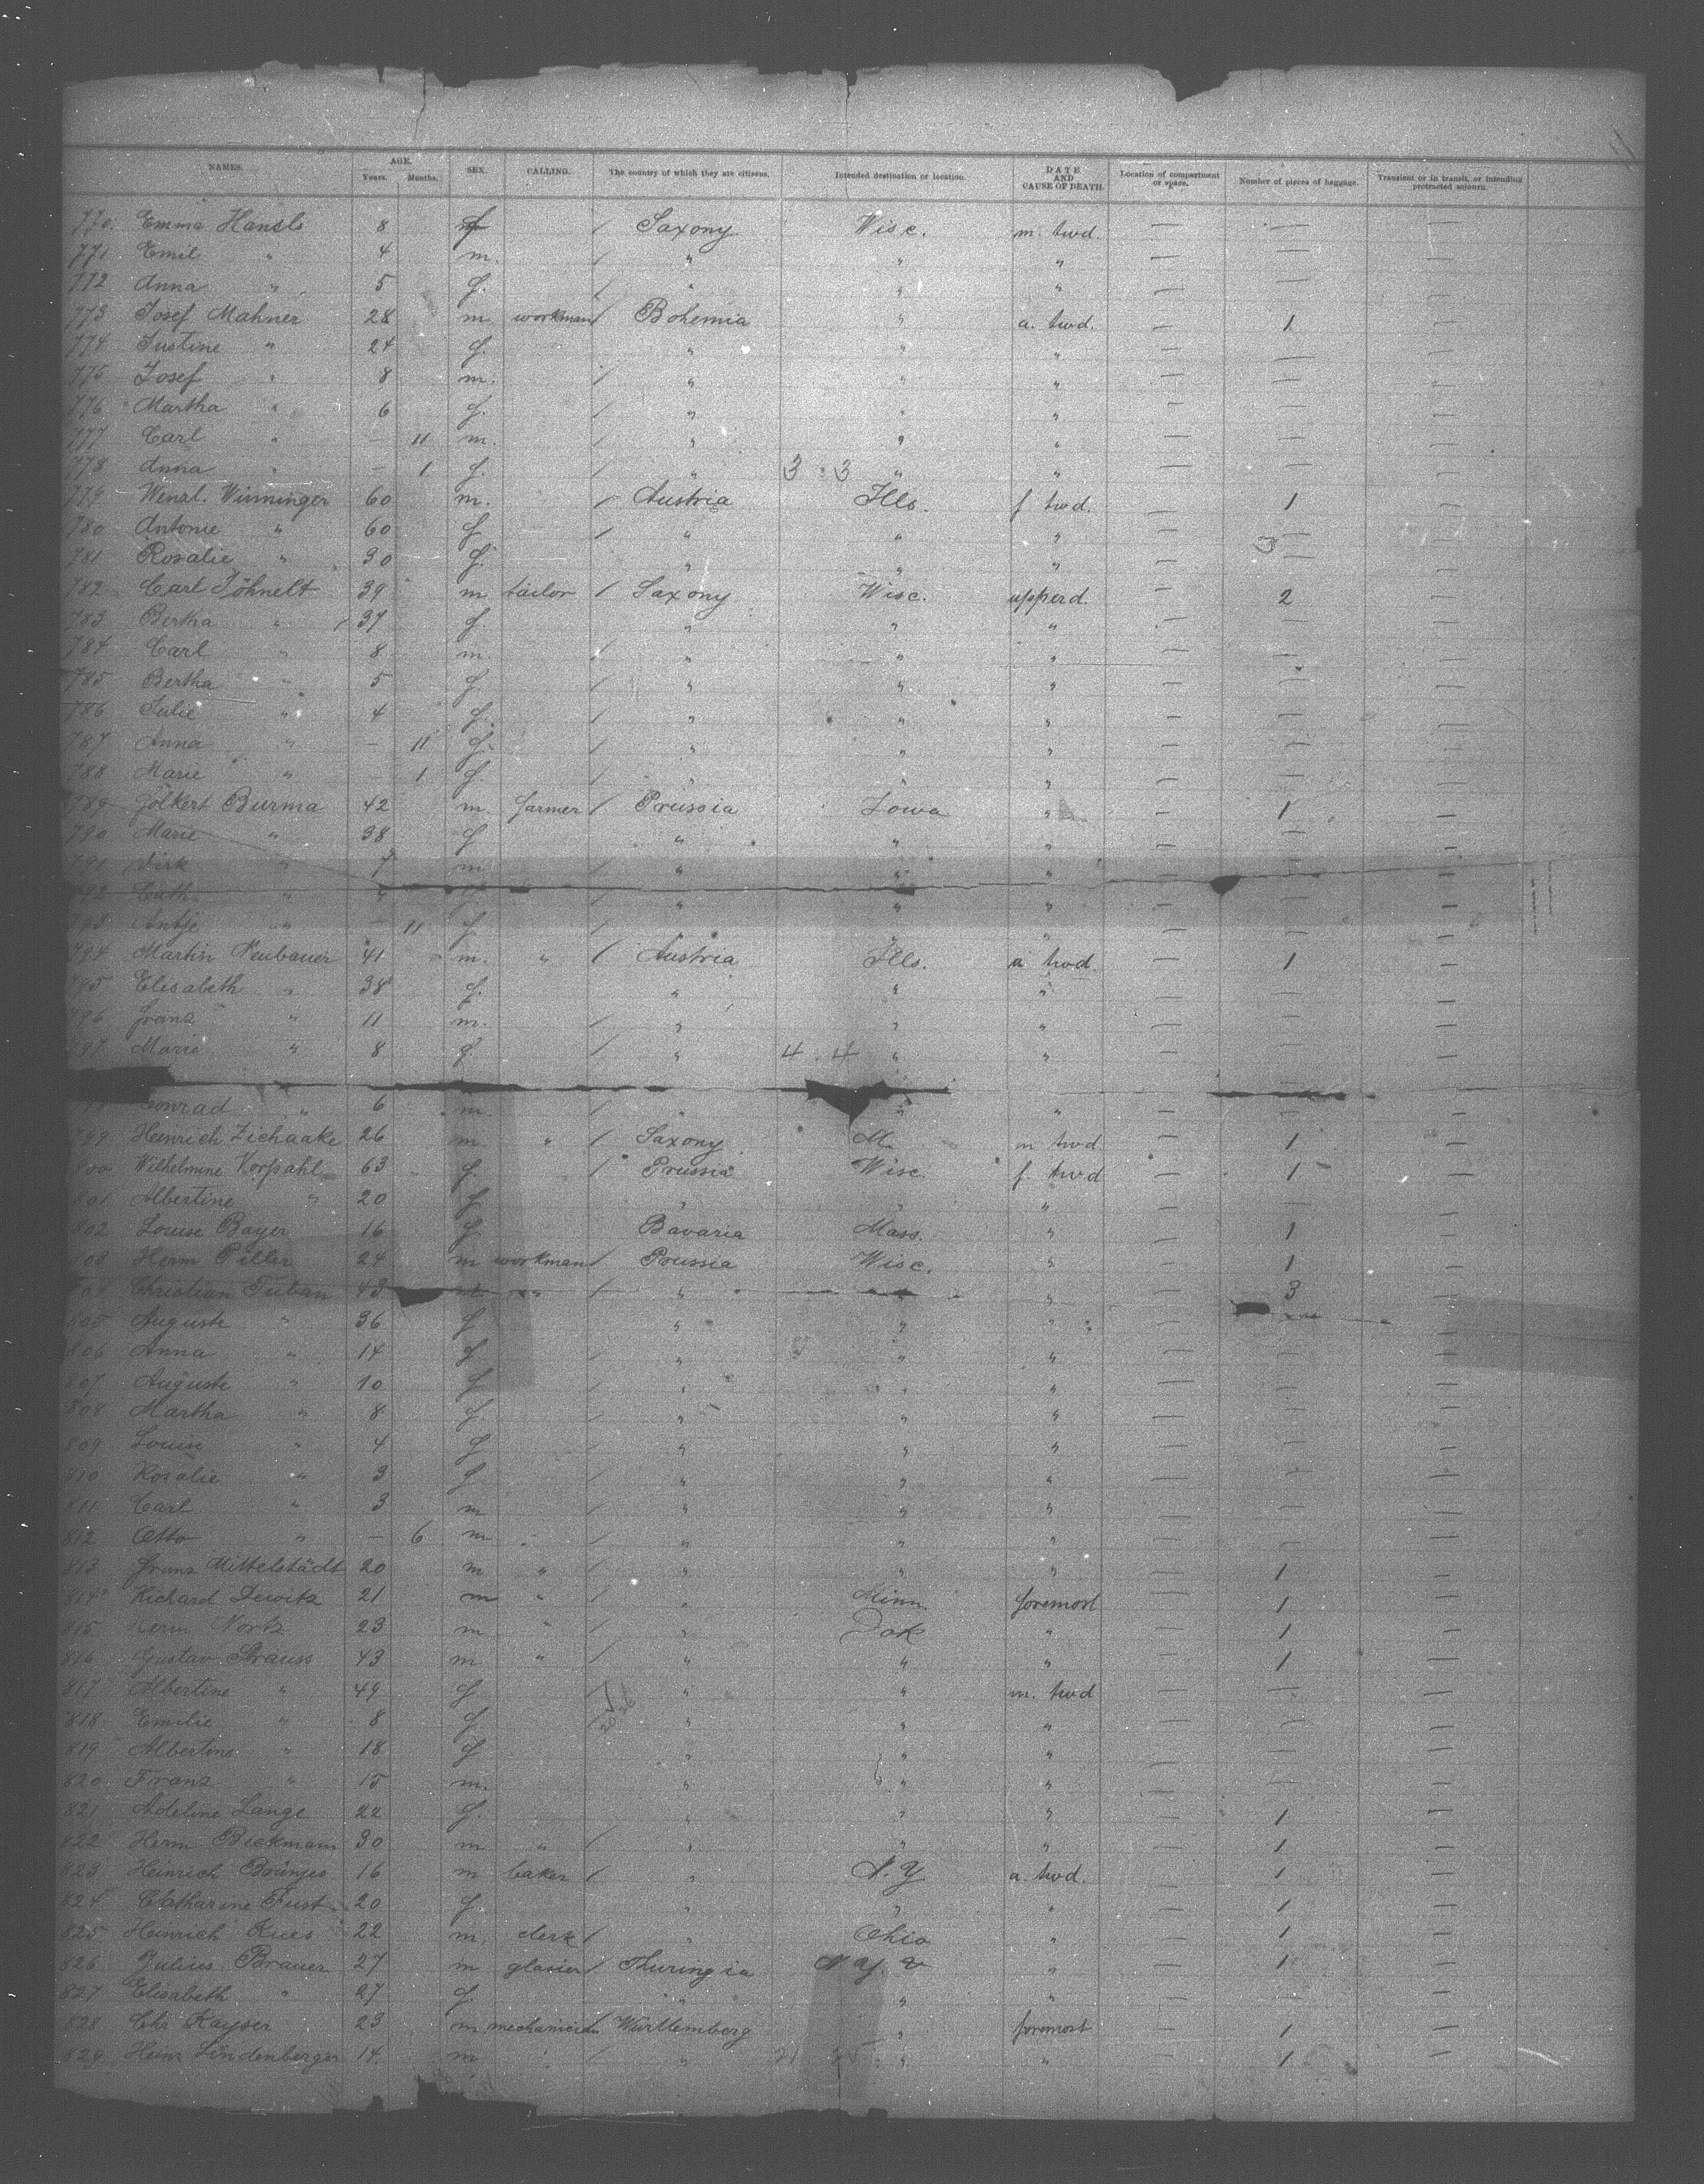 NAMES. AGE. Years. Months. SEX. CALLING. The country of which they are citizens. Intended destination or location. DATE AND CAUSE OF DEATH. Location of compartment or space. Number of pieces of baggage. Transient or in transit, or intending protracted sojourn.
770. Emma 8 f / Saxony Wisc. m. twd. — — —
771 Emil " 4 m. / " " " — — —
772 Anna " 5 f. / " " " — — —
773 Josef Mahner 28 m. workman / Bohemia " a. twd. — 1 —
774 Justine " 24 f. " " " — — —
775 Josef " 8 m. / " " " — — —
776 Martha " 6 f. / " " " — — —
777 Carl " — 11 m. / " " " — — —
778 Anna " — 1 f. / " 3 : 3 " " — — —
779 Wenzl. Winninger 60 m. / Austria Ills. f twd. — 1 —
780 Antonie " 60 f / " " " — — —
781 Rosalie " 30 f. " " " — 3 — —
782 Carl Jöhnelt 39 m tailor / Saxony Wisc. upperd. — 2 —
783 Bertha " 37 f " " " — — —
784 Carl " 8 m. / " " " — — —
785 Bertha " 5 f / " " " — — —
786 Julie " 4 f. / " " " — — —
787 Anna " — 11 f. / " " " — — —
788 Marie " — 1 f. / " " " — — —
789 Folkert Burma 42 m. farmer / Prussia Iowa " — 1 —
790 Marie " 38 f " " " — — —
791 Dirk " 7 m / " " " — — —
792 Cath. " " " " — — —
793 Antje " — 11 f. / " " " — — —
794 Martin Neubauer 41 m. " / Austria Ills. a twd. — 1 —
795 Elisabeth " 38 f. " " " — — —
796 Franz " 11 m. / " " " — — —
797 Marie " 8 f. / " 4 . 4 " " — — —
798 Conrad " 6 m. / " " " — — —
799 Heinrich Zschaake 26 m " / Saxony M. m twd — 1 —
800 Wilhelmine Vorpahl 63 f. / Prussia Wisc. f. twd — 1 —
801 Albertine " 20 f " " " — — —
802 Louise Bayer 16 f. Bavaria Mass. " — 1 —
803 Herm Piller 24 m workman / Prussia Wisc. " — 1 —
804 Christian 43 " " " — 3
805 Auguste " 36 f " " " — —
806 Anna " 14 f / " " " — — —
807 Auguste " 10 f / " " " — — —
808 Martha " 8 f. / " " " — — —
809 Louise " 4 f / " " " — — —
810 Rosalie " 3 f / " " " — — —
811 Carl " 3 m / " " " — — —
812 Otto " — 6 m / " " " — — —
813 Franz Mittelstädt 20 m " / " " " — 1 —
814 Richard Dewitz 21 m " / " Minn. foremost — 1 —
815 Herm 23 m " / " Dak " — 1 —
816 Gustav Strauss 43 m " / " " " — 1 —
817 Albertine " 49 f / " " m. twd — — —
818 Emilie " 8 f / " " " — — —
819 Albertine " 18 f " " " — — —
820 Franz " 15 m. " " " — — —
821 Adeline Lange 22 f. " " " — 1 —
822 Herm Bickmann 30 m " / " " " — 1 —
823 Heinrich Brünjes 16 m baker / " N.Y. a. twd. — 1 —
824 Catharine 20 f " " " — 1 —
825 Heinrich 22 m. clerk / " Ohio " — 1 —
826 Julius Brauer 27 m glasier / Thuringia N.Y. " — 1 —
827 Elisabeth " 27 f. " " " — — —
828 Chr Kayser 23 m mechanician Württemberg " foremost — 1 —
829 Heinr Lindenberger 14 m " / " " " — 1 —